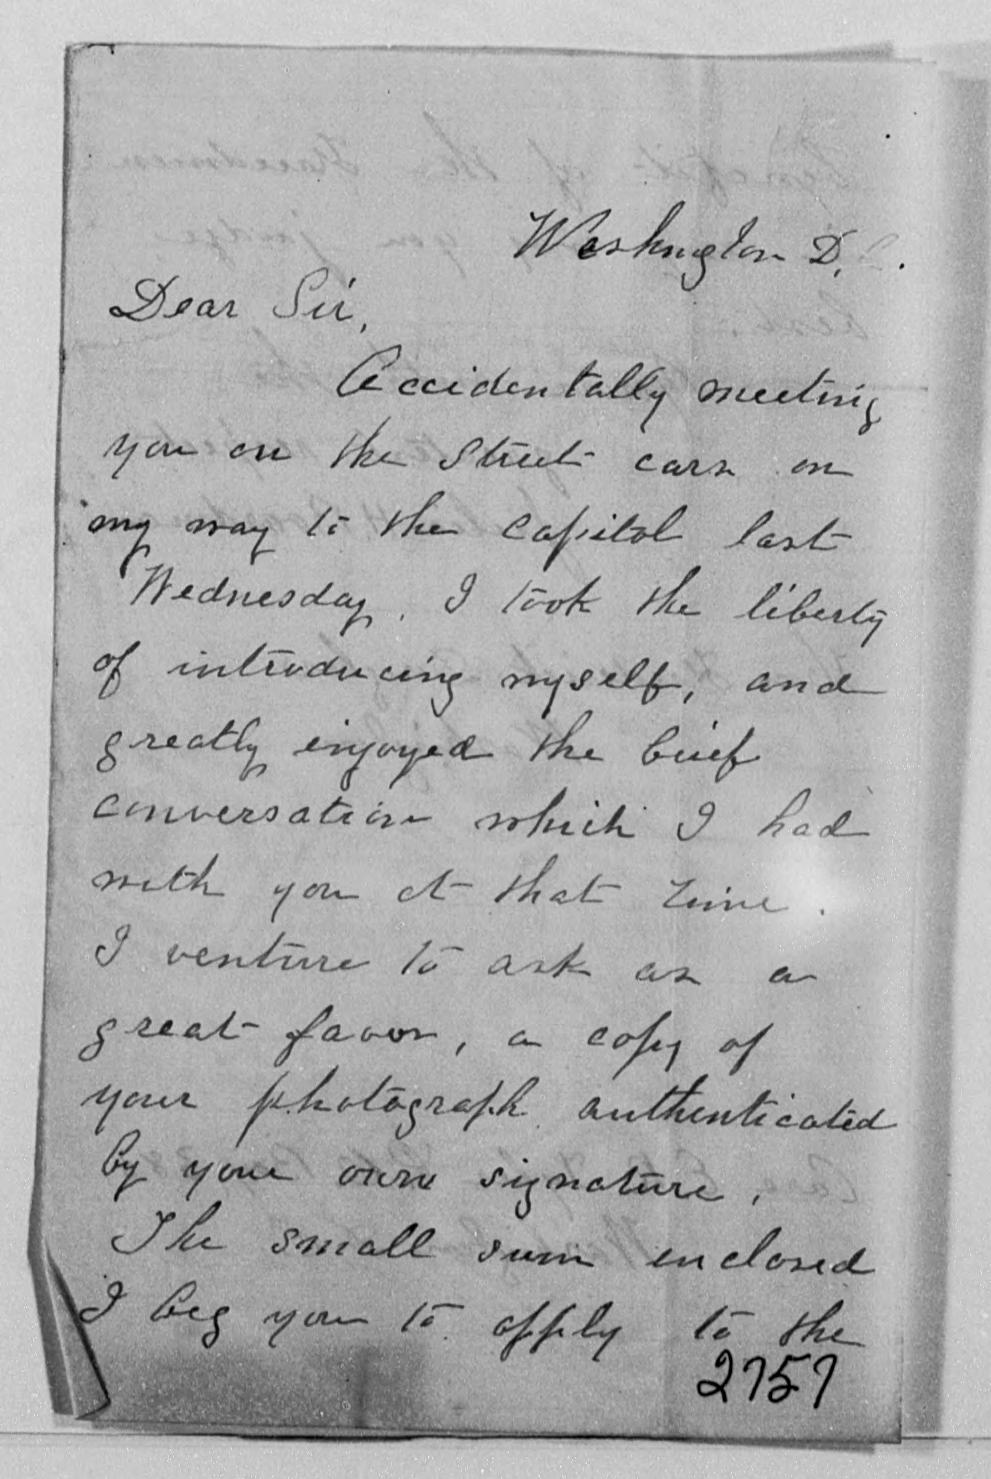 Washington D.C.
Dear Sir,
Accidentally meeting
you on the street cars on
my way to the Capitol last
Wednesday, I took the liberty
of introducing myself, and
greatly enjoyed the brief
conversation which I had
with you at that time.
I venture to ask as a
great favor, a copy of
your photograph authenticated
by your own signature.
The small sum enclosed
I beg you to apply to the
2757